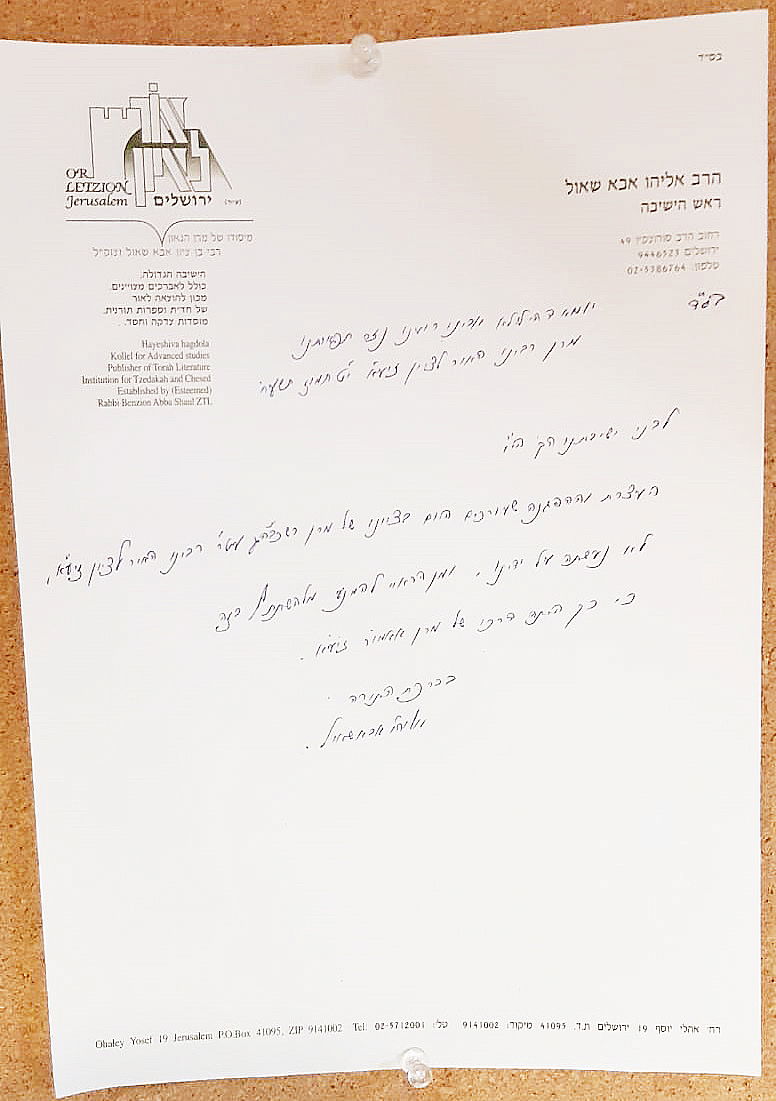 בס״ד
אור לציון
OR
LETZION
Jerusalem
ירושלים (ע״ר)
מיסודו של מרן הגאון
רבי בן ציון אבא שאול זצוק״ל
הישיבה הגדולה.
כולל לאברכים מצויינים.
מכון להוצאה לאור
של חז״ת וספרות תורנית.
מוסדות צדקה וחסד.
Hayeshiva hagdola
Kollel for Advanced studies
Publisher of Torah Literature
Institution for Tzedakah and Chesed
Established by (Esteemed)
Rabbi Benzion Abba Shaul ZTL
הרב אליהו אבא שאול
ראש הישיבה
רחוב הרב סורוצקין 49
ירושלים 9446523
טלפון: 02-5386764
בס״ד
יומא דהילולא אבינו רוענו נזר תפארתנו
מרן רבינו האור לציון זיע״א י״ט תמוז תשע״ח
לבני ישיבתנו הק׳ הי״ו
העצרת וההפגנה שעורכים היום בציונו של מרן רשכבה״ג עט״ר רבינו האור לציון זיע״א,
לא נעשתה על ידינו, ומן הראוי להמנע מלהשתתף בזה
כי כך היתה דרכו של מרן אאמו״ר זיע״א.
בברכת התורה
אליהו אבא שאול.
רח׳ אהלי יוסף 19 ירושלים ת.ד. 41095 מיקוד: 9141002 טל: 02-5712001 Ohaley Yosef 19 Jerusalem P.O.Box 41095, ZIP 9141002 Tel: